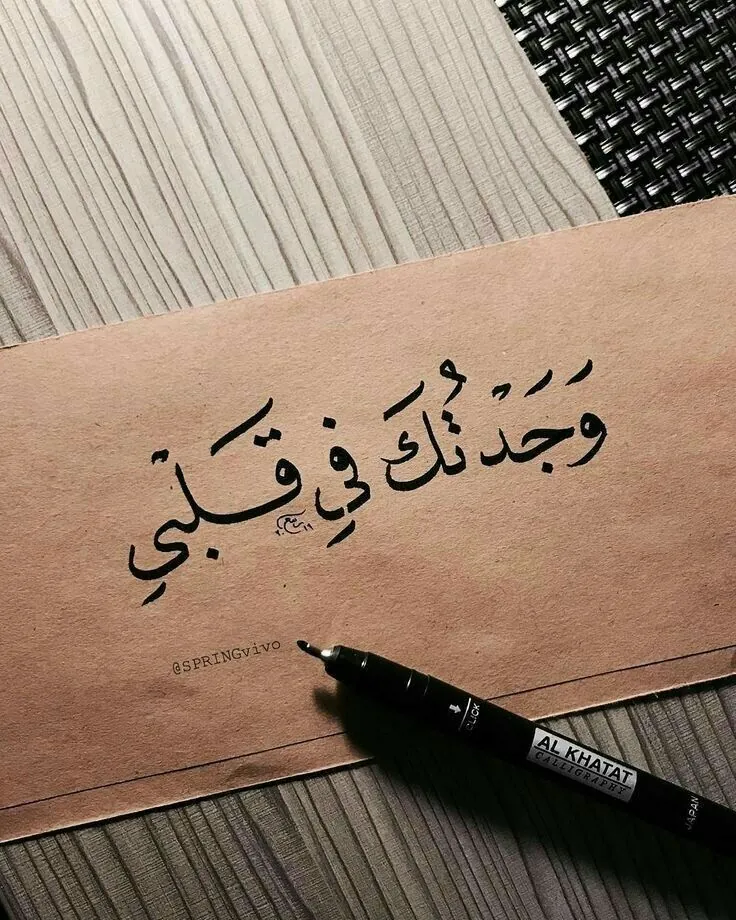 وَجَدْتُكَ فِي قَلْبِي
@SPRINGvivo
CLICK
AL KHATAT
CALLIGRAPHY
JAPAN